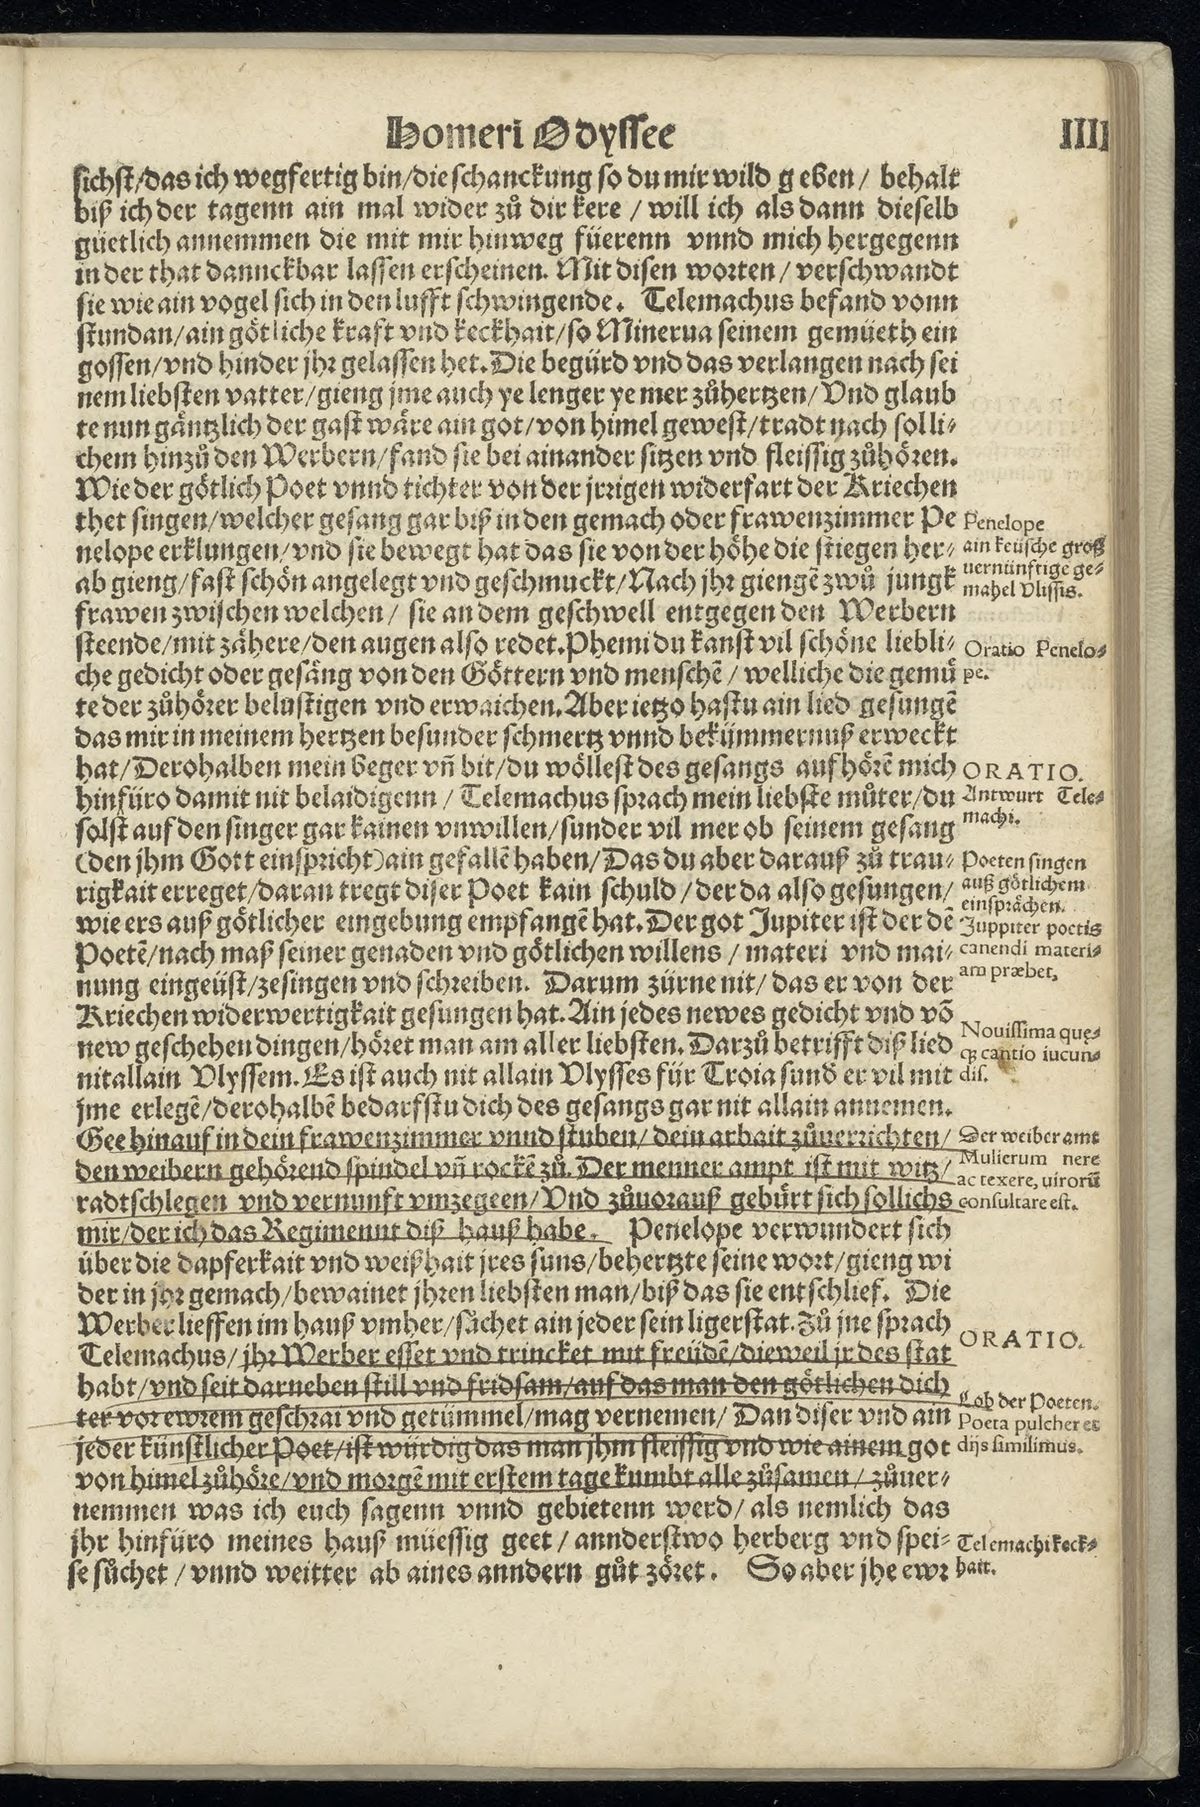 Homeri Odyssee
IIII
sichst/das ich wegfertig bin/die schanckung so du mir wild geben/ behalt
biß ich der tagenn ain mal wider zů dir kere / will ich als dann dieselb
güetlich annemmen die mit mir hinweg füerenn vnnd mich hergegenn
in der that dannckbar lassen erscheinen. Mit disen worten / verschwandt
sie wie ain vogel sich in den lufft schwingende. Telemachus befand vonn
stundan/ain götliche kraft vnd keckhait/so Minerua seinem gemüeth ein
gossen/vnd hinder jhr gelassen het. Die begürd vnd das verlangen nach sei
nem liebsten vatter/gieng jme auch ye lenger ye mer zůhertzen/Vnd glaub
te nun gäntzlich der gast wäre ain got/von himel gewest/tradt nach solli⸗
chem hinzů den Werbern/fand sie bei ainander sitzen vnd fleissig zůhören.
Wie der götlich Poet vnnd tichter von der jrrigen widerfart der Kriechen
thet singen/welcher gesang gar biß in den gemach oder frawenzimmer Pe
nelope erklungen/vnd sie bewegt hat das sie von der höhe die stiegen her⸗
ab gieng/fast schön angelegt vnd geschmuckt/Nach jhr giengẽ zwů jungk
frawen zwischen welchen/ sie an dem geschwell entgegen den Werbern
steende/mit zähere/den augen also redet. Phemi du kanst vil schöne liebli⸗
che gedicht oder gesäng von den Göttern vnd menschẽ / welliche die gemü
te der zůhörer belustigen vnd erwaichen. Aber ietzo hastu ain lied gesungẽ
das mir in meinem hertzen besunder schmertz vnnd bekümmernuß erweckt
hat/Derohalben mein beger vñ bit/du wöllest des gesangs aufhörẽ mich
hinfüro damit nit belaidigenn / Telemachus sprach mein liebste můter/du
solst auf den singer gar kainen vnwillen/sunder vil mer ob seinem gesang
(den jhm Gott einspricht)ain gefallẽ haben/Das du aber darauß zů trau⸗
rigkait erreget/daran tregt diser Poet kain schuld /der da also gesungen/
wie ers auß götlicher eingebung empfangẽ hat. Der got Jupiter ist der dẽ
Poetẽ/nach maß seiner genaden vnd götlichen willens / materi vnd mai⸗
nung eingeüst/zesingen vnd schreiben. Darum zürne nit/das er von der
Kriechen widerwertigkait gesungen hat. Ain jedes newes gedicht vnd võ
new geschehen dingen/höret man am aller liebsten. Darzů betrifft diß lied
nit allain Vlyssem. Es ist auch nit allain Vlysses für Troia sund er vil mit
jme erlegẽ/derohalbẽ bedarfstu dich des gesangs gar nit allain annemen.
Gee hinauf in dein frawenzimmer vnnd stuben/ dein arbait zůuerrichten/
den weibern gehörend spindel vñ rockẽ zů. Der menner ampt ist mit witz/
radtschlegen vnd vernunft vmzegeen/Vnd zůuorauß gebürt sich sollichs
mir/der ich das Regimennt diß hauß habe. Penelope verwundert sich
über die dapferkait vnd weißhait jres suns/behertzte seine wort/gieng wi
der in jhr gemach/bewainet jhren liebsten man/biß das sie entschlief. Die
Werber lieffen im hauß vmher/sůchet ain jeder sein ligerstat. Zů jne sprach
Telemachus/jhr Werber esset vnd trincket mit freüdẽ/dieweil jr des stat
habt/vnd seit darneben still vnd fridsam/auf das man den götlichen dich
ter vor ewrem geschrai vnd getümmel/mag vernemen/ Dan diser vnd ain
jeder künstlicher Poet/ist würdig das man jhm fleissig vnd wie ainem got
von himel zůhöre/vnd morgẽ mit erstem tage kumbt alle zůsamen/ zůuer⸗
nemmen was ich euch sagenn vnnd gebietenn werd/ als nemlich das
jhr hinfüro meines hauß müessig geet / annderstwo herberg vnd spei⸗
se sůchet / vnnd weitter ab aines anndern gůt zöret. So aber jhe ewr
Penelope
ain keüsche groß
uernünftige ge⸗
mahel Vlissis.
Oratio Penelo⸗
pe.
ORATIO.
Antwurt Tele⸗
machi.
Poeten singen
auß götlichem
einsprächen.
Juppiter poetis
canendi materi⸗
am præbet,
Nouissima quę⸗
qꝫ cantio iucun⸗
dis.
Der weiber amt
Mulierum nere
ac texere, uirorũ
consultare est.
ORATIO.
Lob der Poeten.
Poeta pulcher et
dijs similimus.
Telemachi keck⸗
hait.